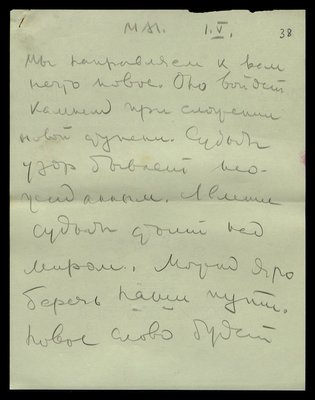 1
МАІ. 1.V. 38
Мы направляем к вам
нечто новое. Оно войдет
камнем при сложении
новой ступени. Судьбы
узор бывает нео-
жиданным.
судьбы над
миром. Могуч
беречь наши пути.
Новое слово будет